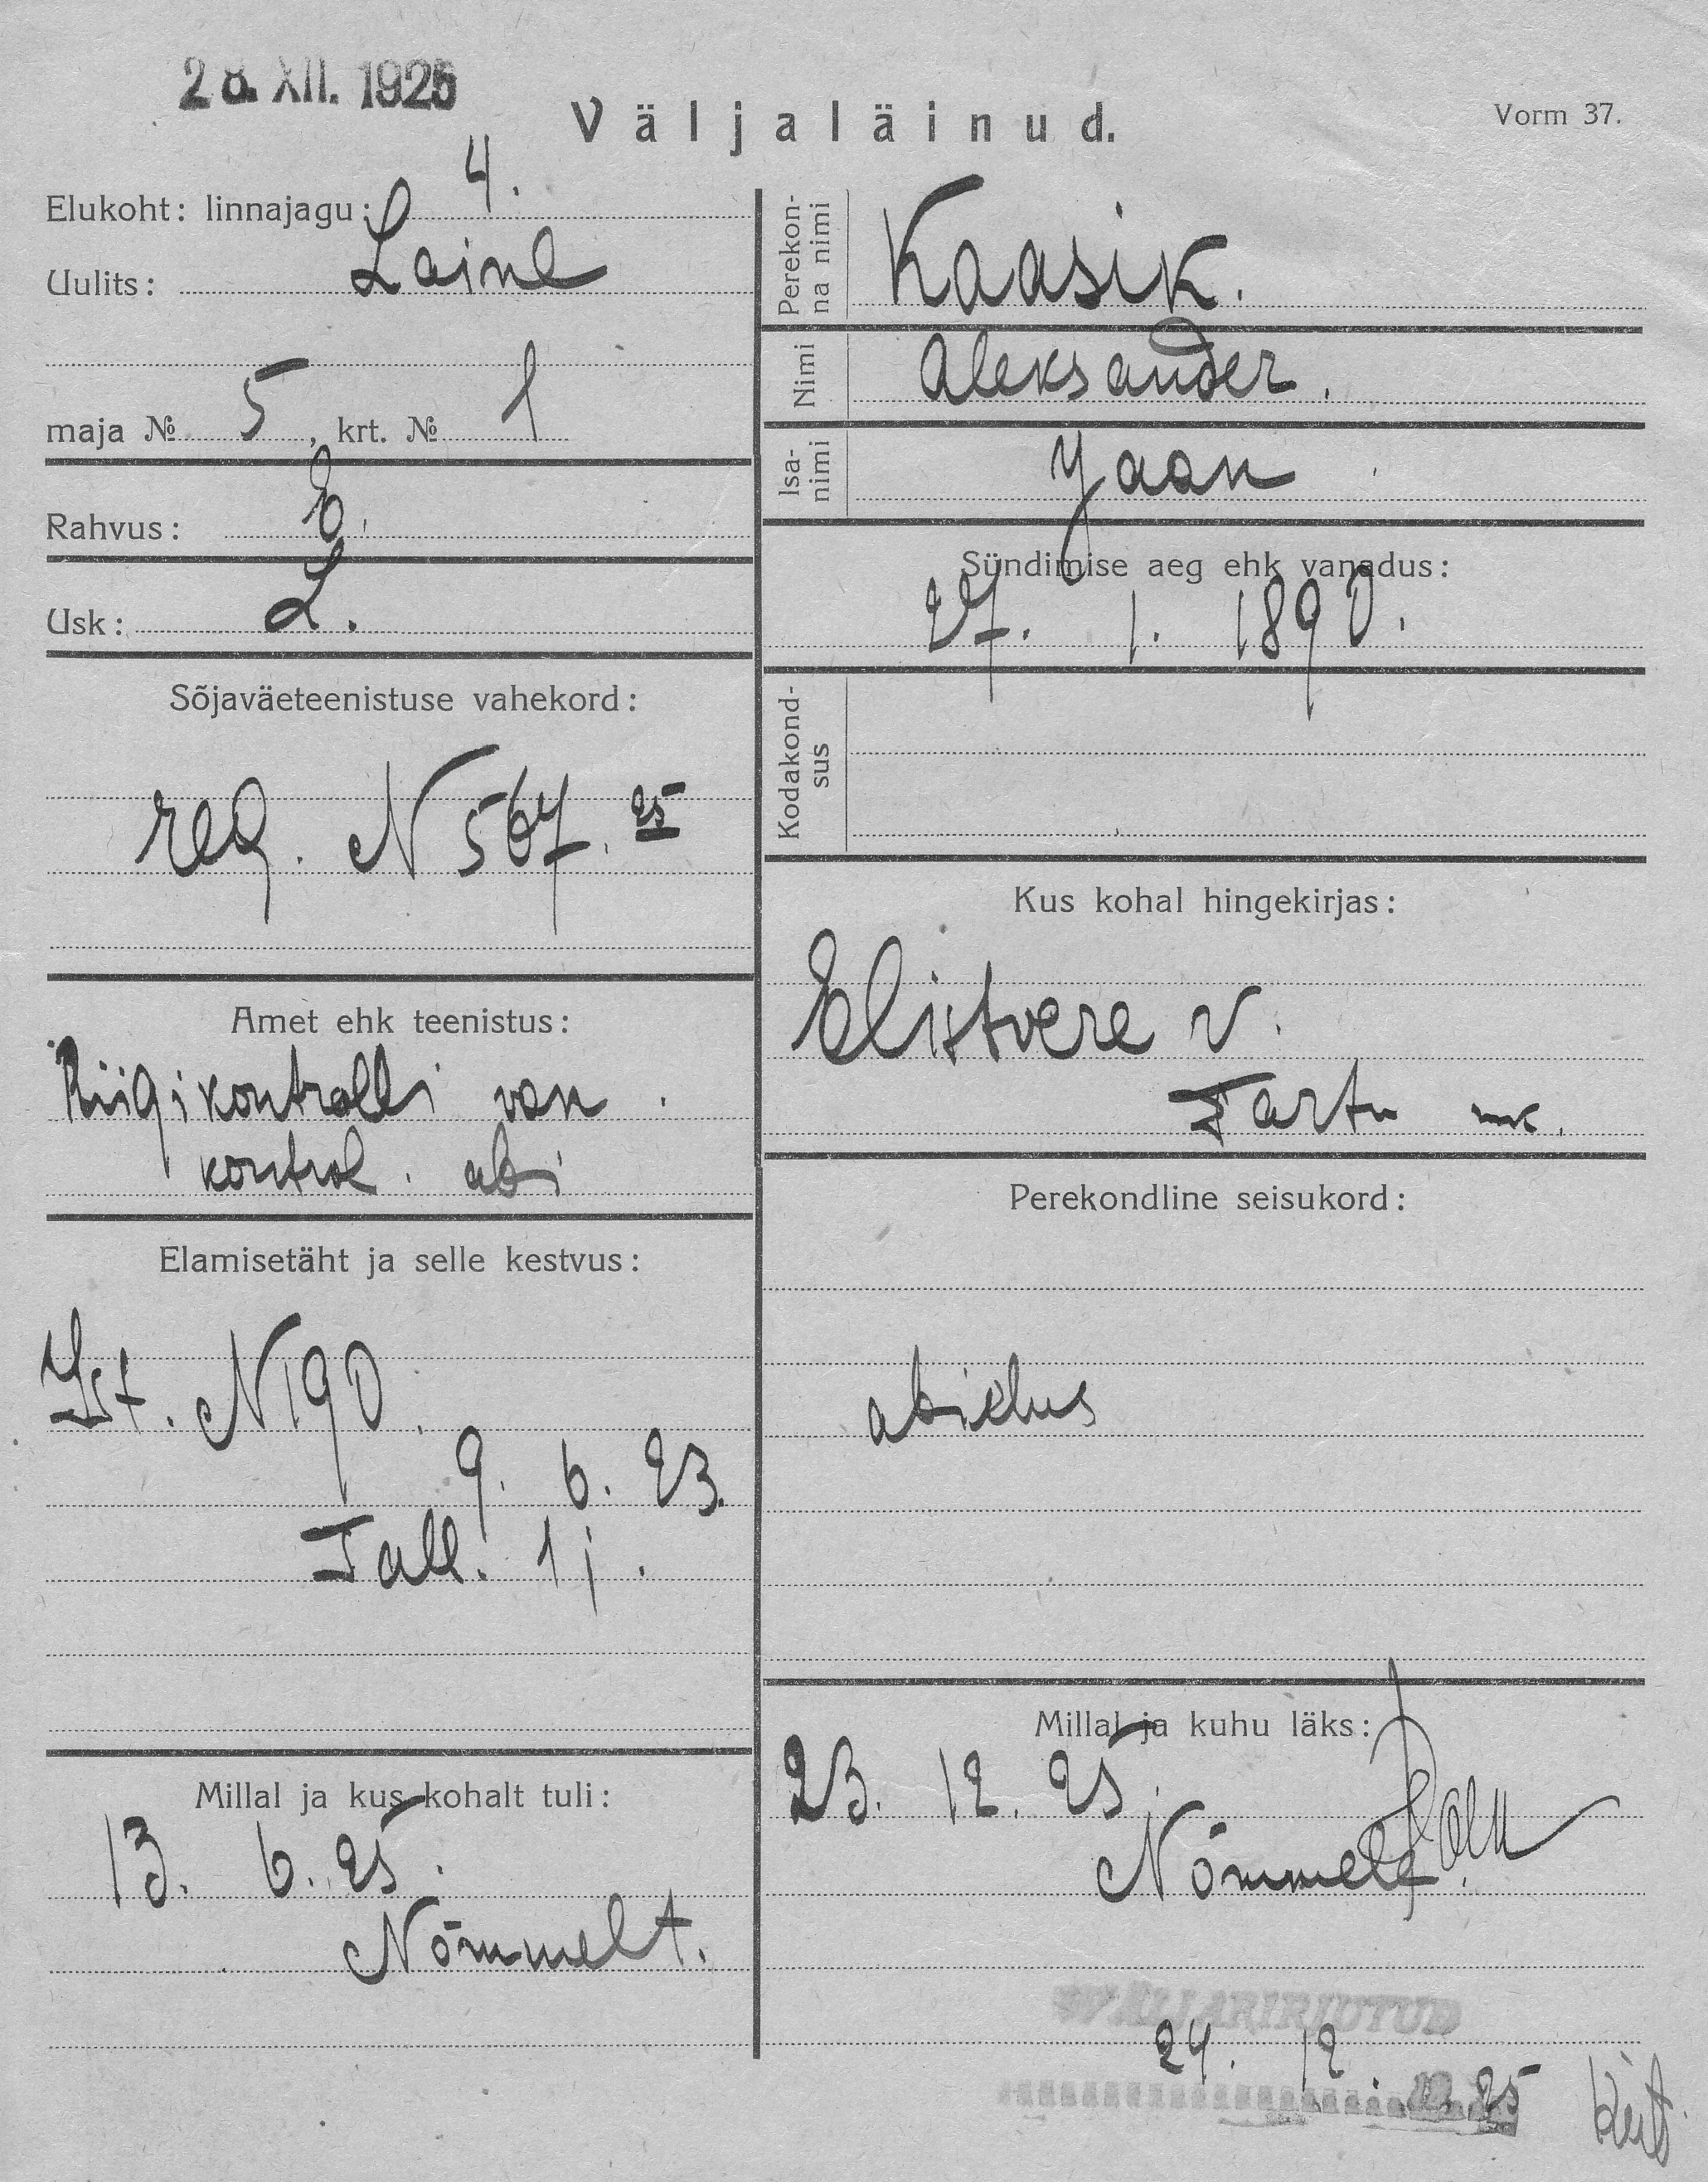 28. XII. 1925
Väljaläinud.
Vorm 37.
Elukoht: linnajagu: 4.
Uulits: Laine
maja № 5, krt. № 1
Rahvus: E.
Usk: L.
Sõjaväeteenistuse vahekord:
reg. N 567. 25
Amet ehk teenistus:
Riigikontrolli van.
kontrol. abi
Elamisetäht ja selle kestvus:
Ist. N 190.
9. 6. 23.
Tall. 1 j.
Millal ja kus kohalt tuli:
13. 6. 25.
Nõmmelt.
Perekon-
na nimi
Kaasik.
Nimi Aleksander.
Isa-
nimi
Jaan
Sündimise aeg ehk vanadus:
27. 1. 1890.
Kodakond-
sus
Kus kohal hingekirjas:
Elistvere v.
Tartu mk.
Perekondline seisukord:
abielus
Millal ja kuhu läks:
23. 12. 25.
Nõmmele.
24. 12. 25